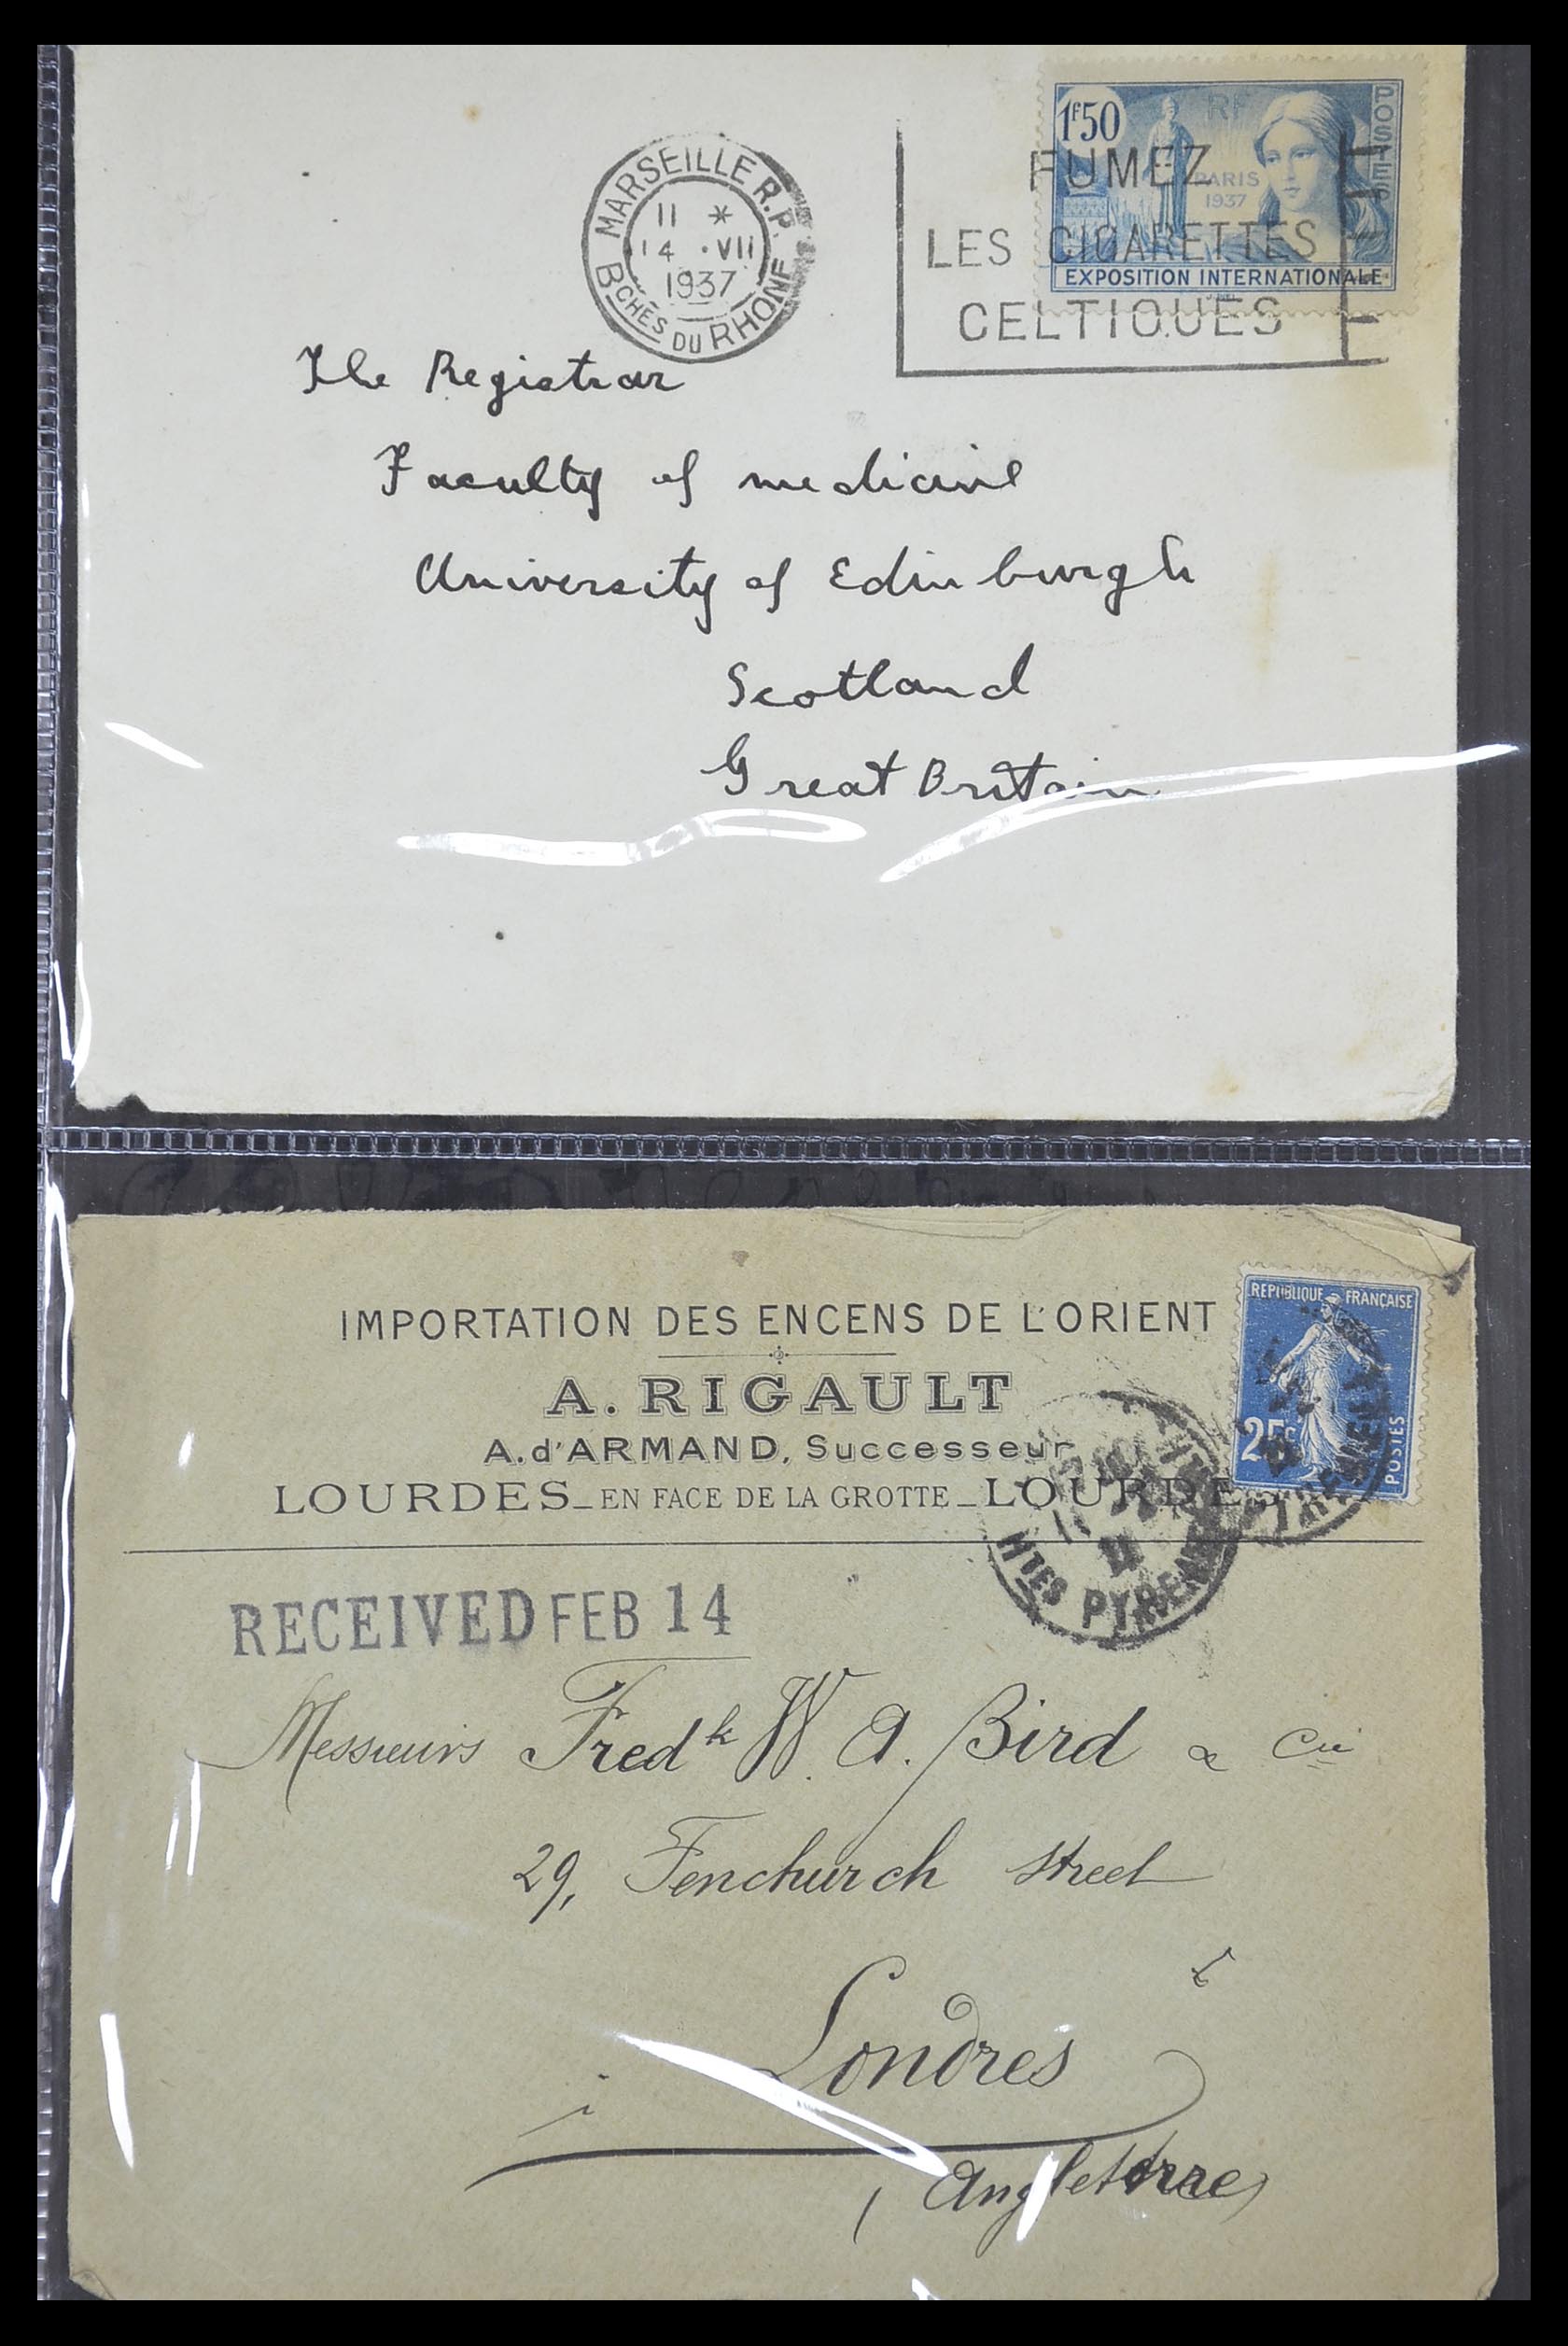 1F50
RF
POSTES
PARIS
1937
EXPOSITION INTERNATIONALE
MARSEILLE R.P.
11 *
14 · VII
1937
BCHES DU RHONE
FUMEZ
LES CIGARETTES
CELTIQUES
The Registrar
Faculty of medicine
University of Edinburgh
Scotland
Great Britain
IMPORTATION DES ENCENS DE L'ORIENT
A. RIGAULT
A. d'ARMAND, Successeur
LOURDES _ EN FACE DE LA GROTTE _ LOURDES
REPUBLIQUE FRANÇAISE
25c
POSTES
HTES PYRENEES
RECEIVED FEB 14
Messieurs Fredk W. A. Bird & Cie
29, Fenchurch Street
Londres
(Angleterre)